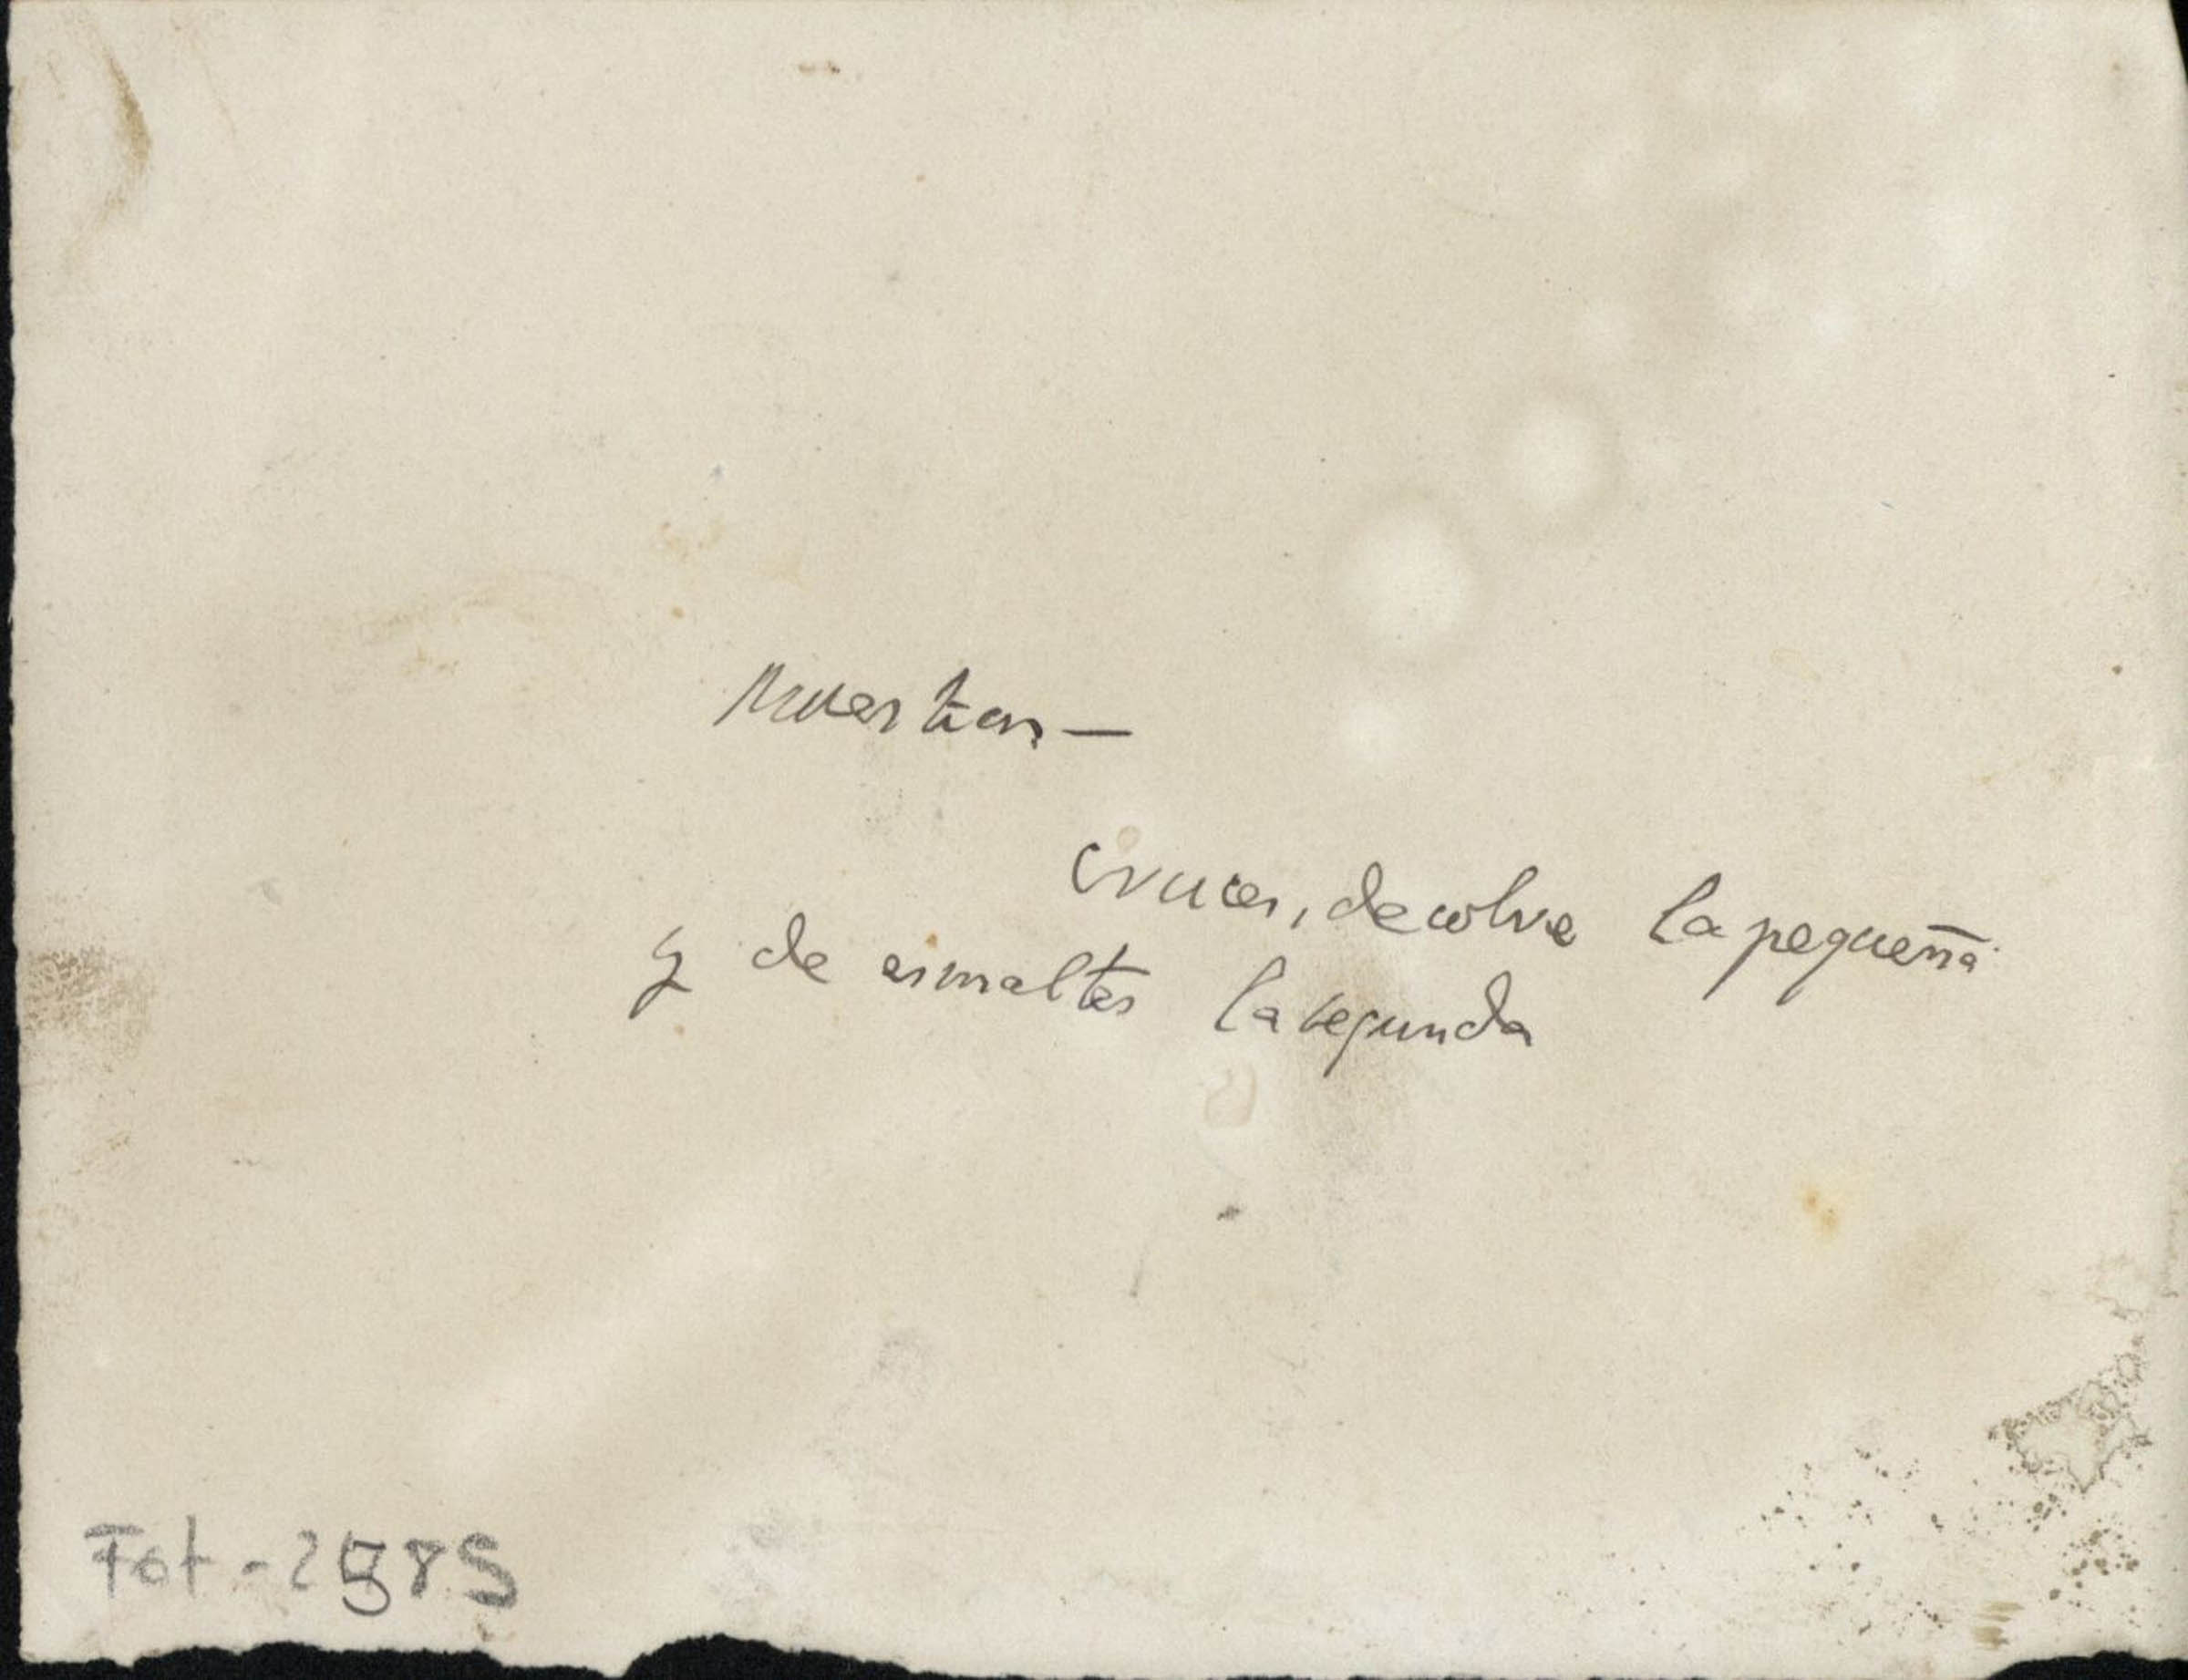 Muestras —
cruces, de cobre la pequeña
y de esmaltes la segunda
Fot-2585